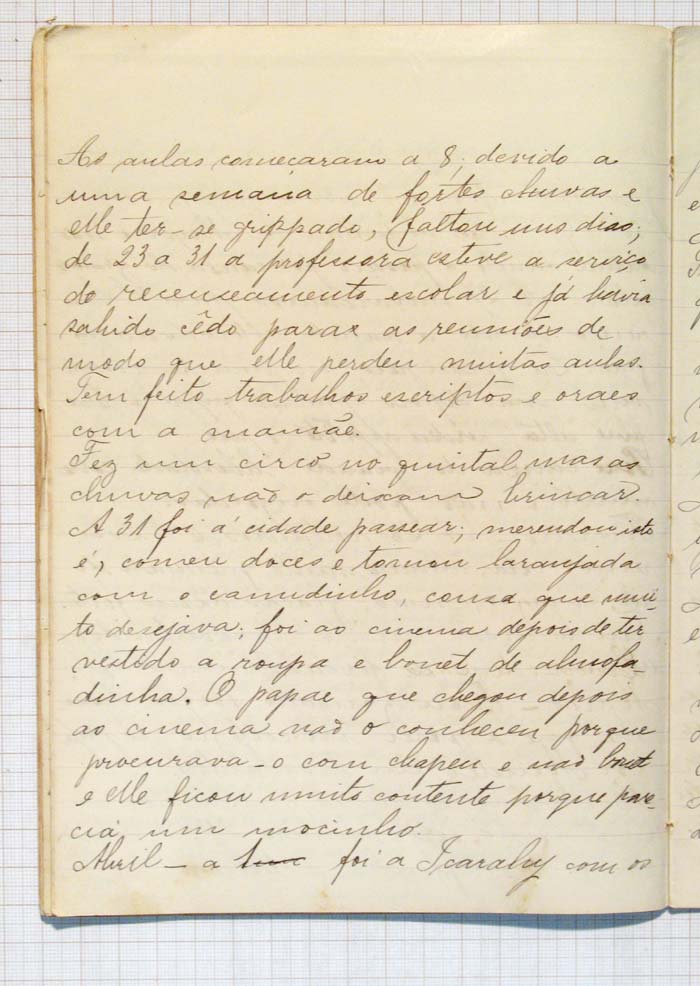 As aulas começaram a 8; devido a
uma semana de fortes chuvas e
elle ter-se grippado, faltou uns dias;
de 23 a 31 a professora esteve a serviço
do recenseamento escolar e já havia
sahido cêdo para as reuniões de
modo que elle perdeu muitas aulas.
Tem feito trabalhos escriptos e oraes
com a mamãe.
Fez um circo no quintal mas as
chuvas não o deixam brincar.
A 31 foi á cidade passear; merendou isto
é, comeu doces e tomou laranjada
com o canudinho, cousa que mui-
to desejava; foi ao cinema depois de ter
vestido a roupa e bonet de almofa-
dinha. O papae que chegou depois
ao cinema não o conheceu porque
procurava-o com chapeu e não bonet
e elle ficou muito contente porque pare-
cia um mocinho.
Abril - a foi a Icarahy com os